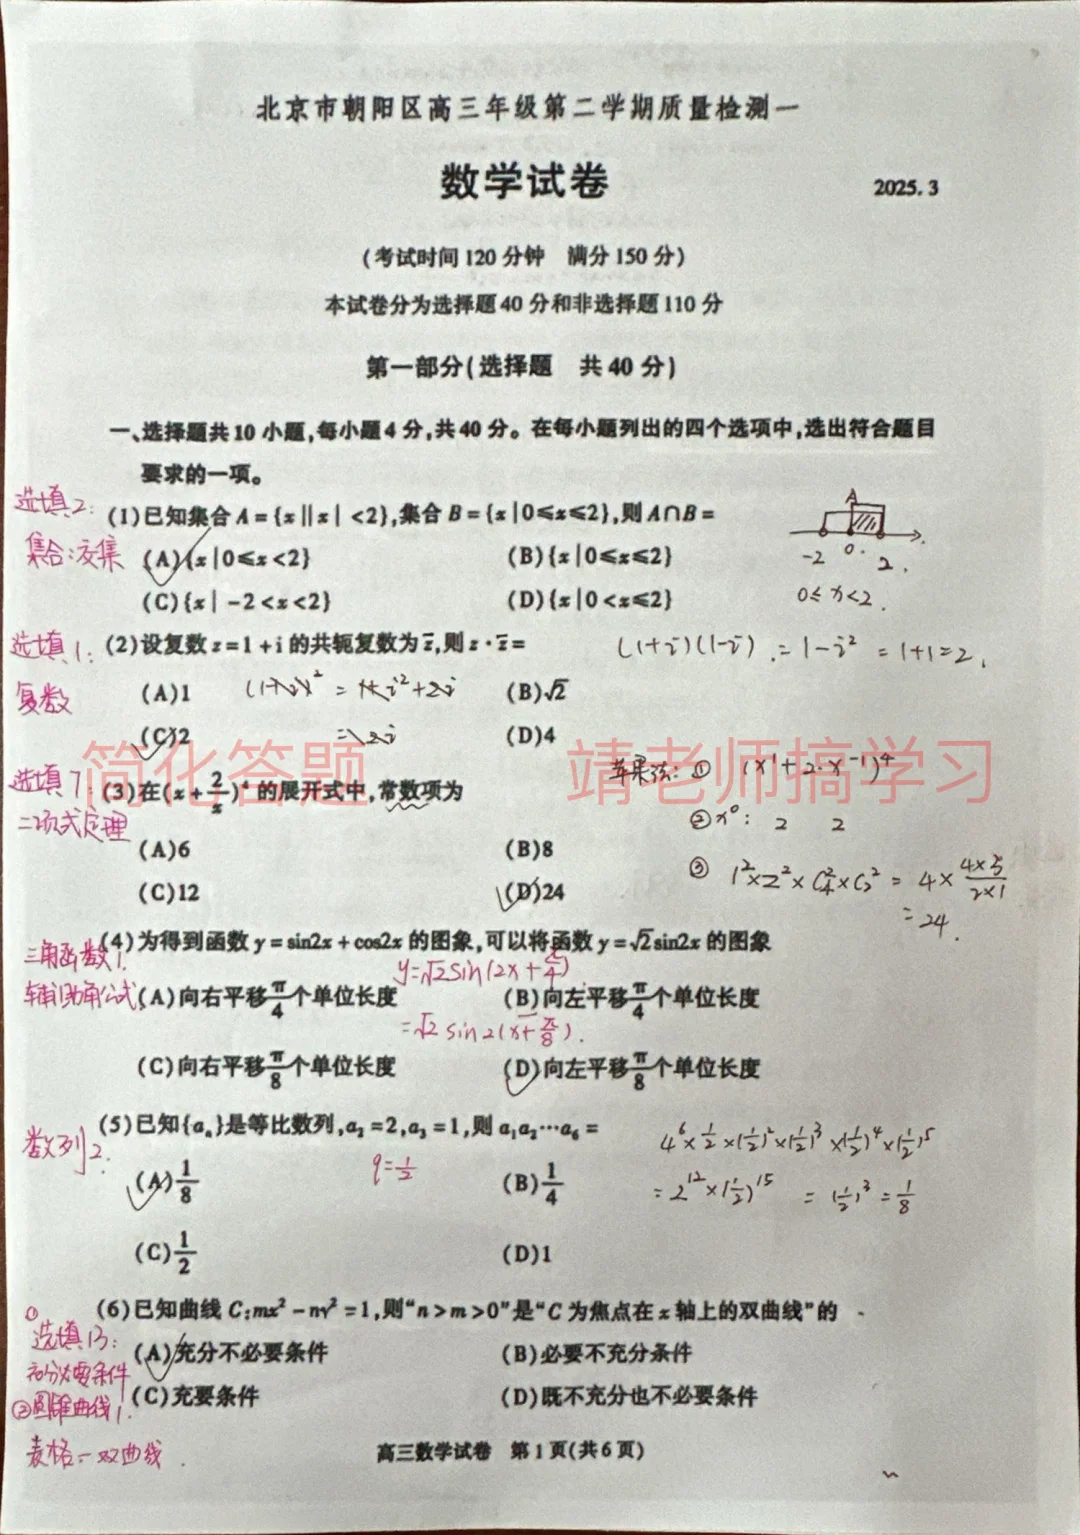 北京市朝阳区高三年级第二学期质量检测一
数学试卷
2025.3
(考试时间120分钟 满分150分)
本试卷分为选择题40分和非选择题110分
第一部分(选择题 共40分)
一、选择题共10小题,每小题4分,共40分。在每小题列出的四个选项中,选出符合题目
要求的一项。
选填2:
集合:交集
(1)已知集合A={x||x|<2},集合B={x|0≤x≤2},则A∩B=
(A){x|0≤x<2}
(B){x|0≤x≤2}
(C){x|-2<x<2}
(D){x|0<x≤2}
A
-2 0. 2.
0≤x<2.
选填1:
复数
(2)设复数z=1+i的共轭复数为z̄,则z·z̄=
(1+i)(1-i).=1-i²=1+1=2.
(A)1
(B)√2
(C)2
(D)4
(1+i)²=1+i²+2i
=2i
简化答题
靖老师搞学习
选填7:
二项式定理
(3)在(x+2/x)⁴的展开式中,常数项为
(A)6
(B)8
(C)12
(D)24
苹果法:① (x¹+2·x⁻¹)⁴
②x⁰: 2 2
③ 1²×2²×C₄²×C₂²=4×(4×3)/(2×1)
=24.
三角函数1:
辅助角公式
(4)为得到函数y=sin2x+cos2x的图象,可以将函数y=√2sin2x的图象
y=√2sin(2x+π/4)
(A)向右平移π/4个单位长度
(B)向左平移π/4个单位长度
=√2sin2(x+π/8).
(C)向右平移π/8个单位长度
(D)向左平移π/8个单位长度
数列2.
(5)已知{aₙ}是等比数列,a₂=2,a₃=1,则a₁a₂…a₆=
q=1/2
(A)1/8
(B)1/4
(C)1/2
(D)1
4⁶×1/2×(1/2)²×(1/2)³×(1/2)⁴×(1/2)⁵
=2¹²×(1/2)¹⁵=(1/2)³=1/8
①
选填13:
充分必要条件
②圆锥曲线1:
表格-双曲线.
(6)已知曲线C:mx²-ny²=1,则“n>m>0”是“C为焦点在x轴上的双曲线”的
(A)充分不必要条件
(B)必要不充分条件
(C)充要条件
(D)既不充分也不必要条件
高三数学试卷 第1页(共6页)